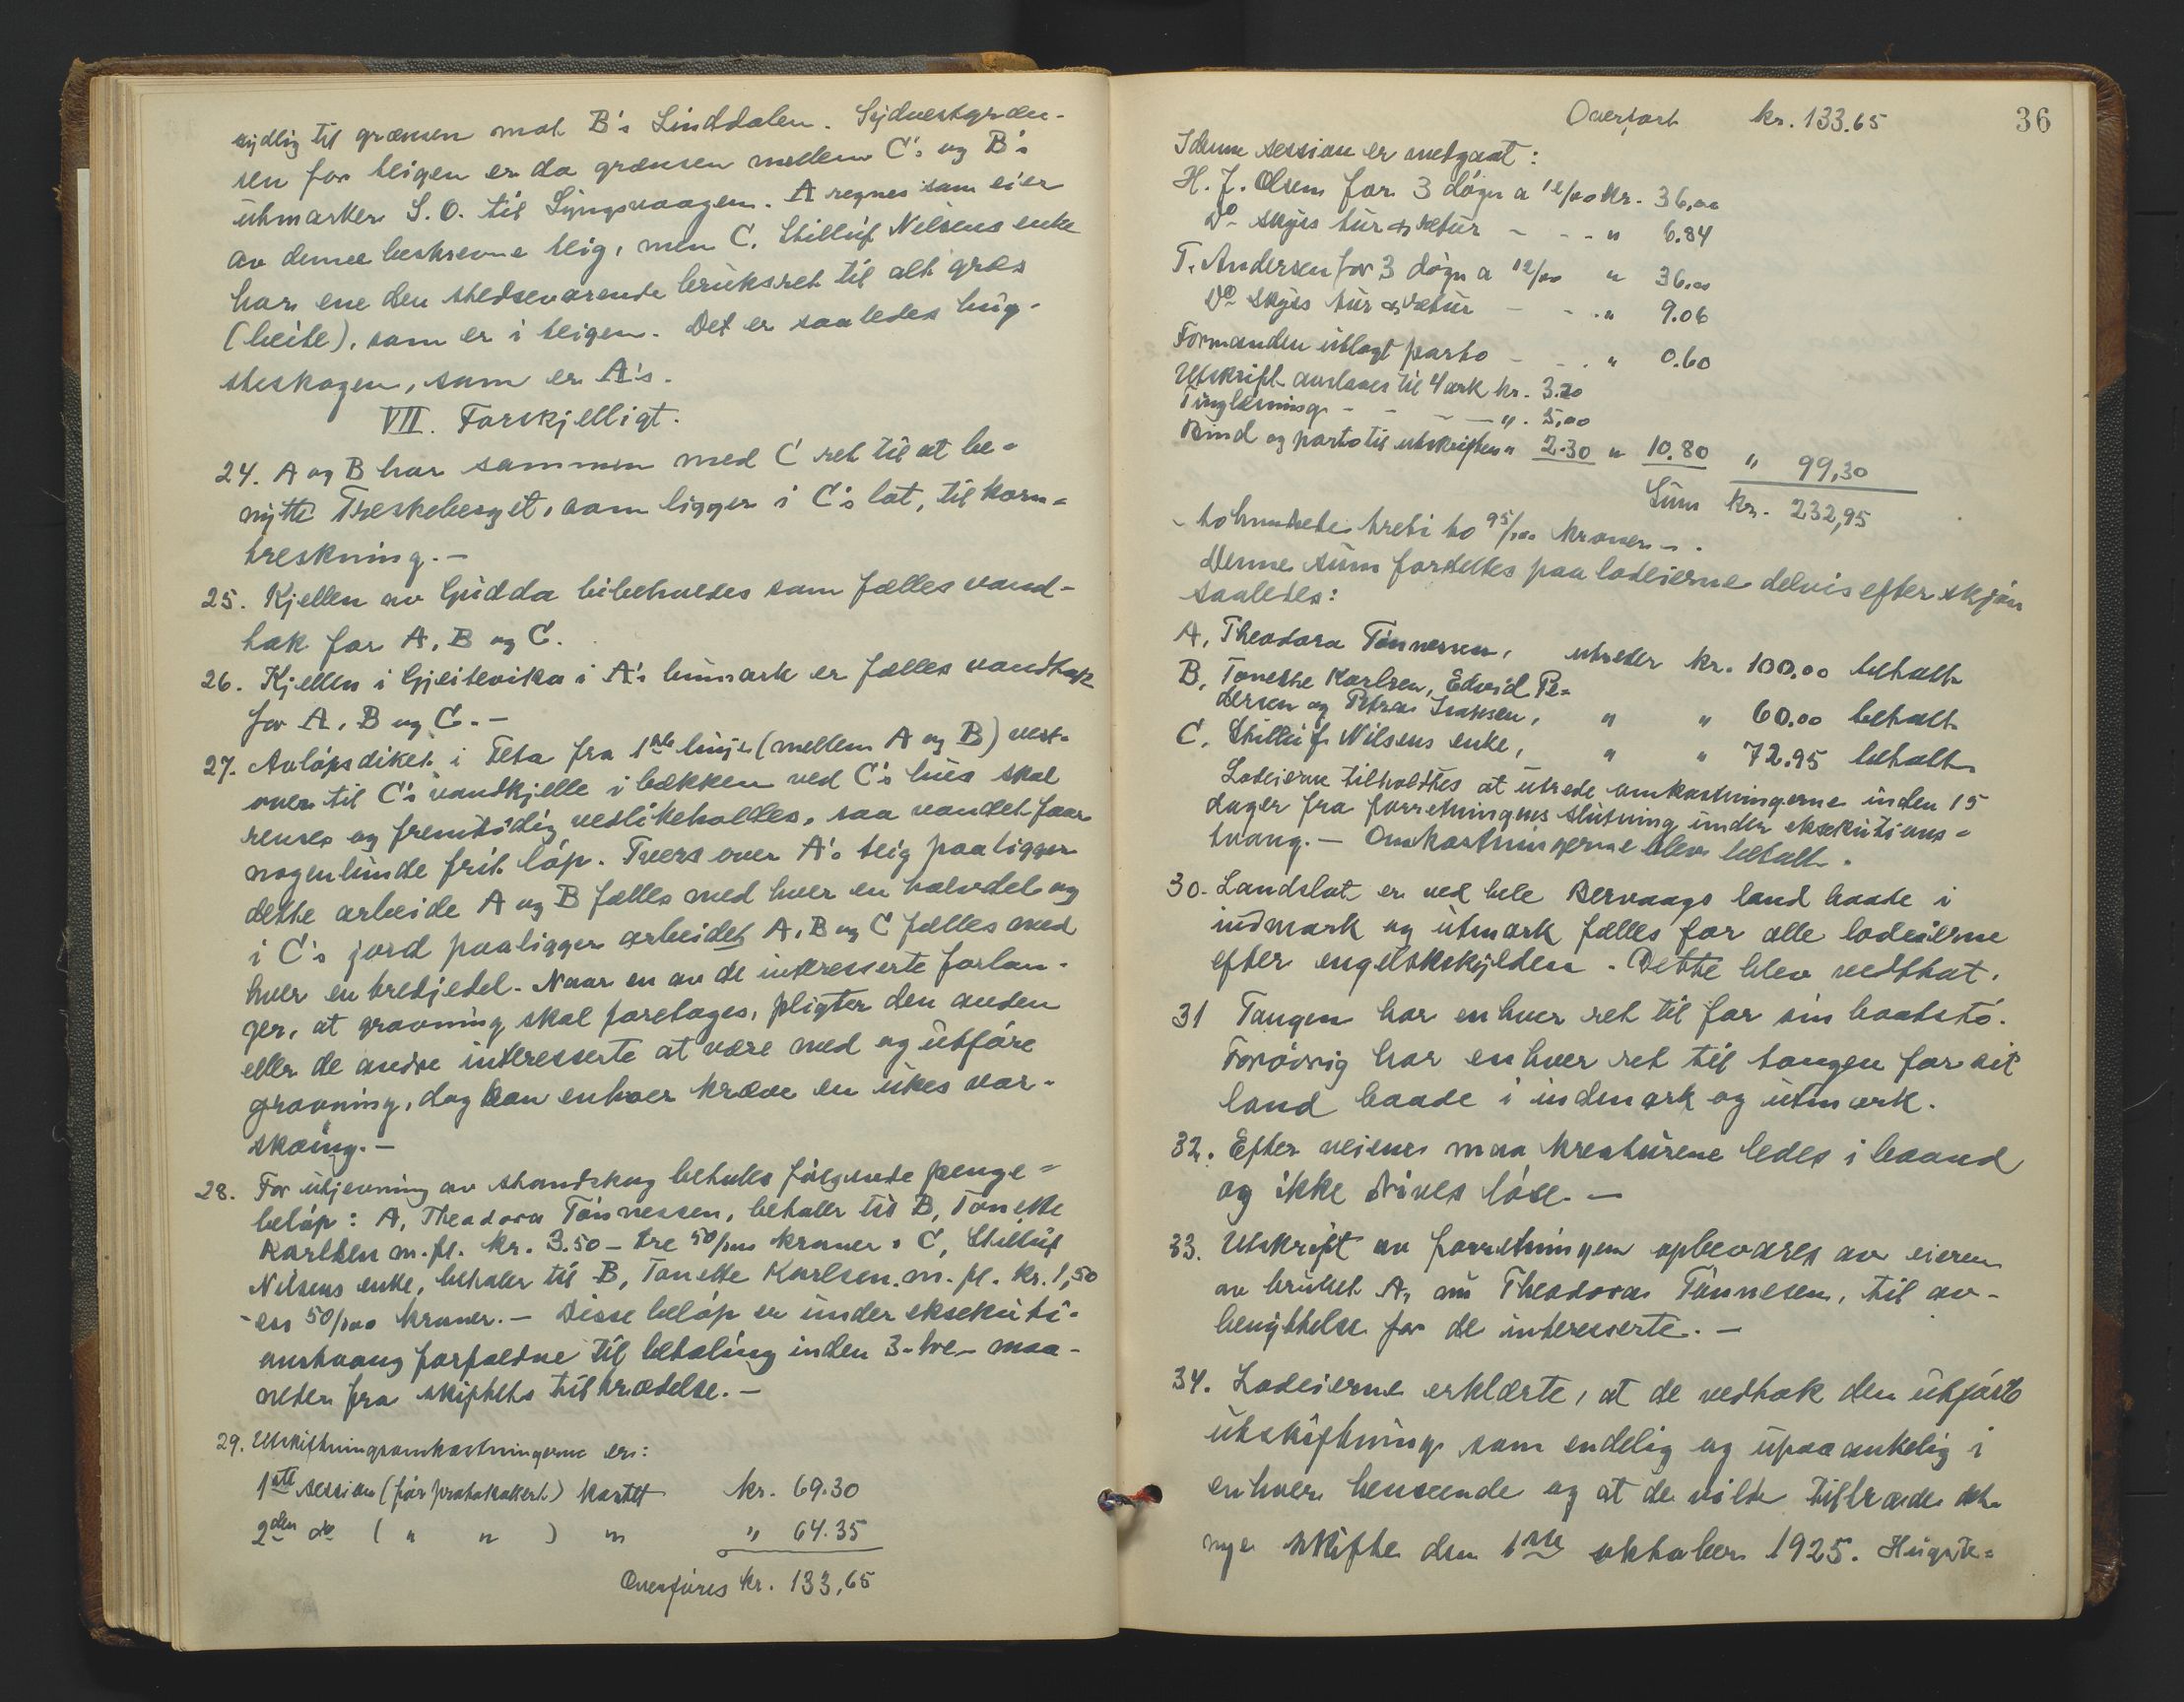 sydlig til grænsen mot B's Linddalen. Sydvestgræn-
sen for teigen er da grænsen mellem C's og B's
utmarker S. O. til Lyngsvaagen. A regnes som eier
av denne beskrevne teig, men C. Stilluf Nilsens enke
har ene den stedsevarende bruksret til alt græs
(beite), som er i teigen. Det er saaledes hug-
steskogen, som er A's.
VII. Forskjelligt.
24. A og B har sammen med C ret til at be-
nytte Treskeberget, som ligger i C's lot, til korn-
treskning.-
25. Kjellen av Gudda bibeholdes som fælles vand-
tak for A, B og C.
26. Kjellen i Gjeitevika i A's innmark er fælles vandtak
for A, B og C.-
27. Avløpsdiket i Teta fra 1ste linje (mellem A og B) vest-
over til C's vandkjelle i bækken ved C's hus skal
renses og fremtidig vedlikeholdes, saa vandet faar
nogenlunde frit løp. Tvers over A's teig paaligger
dette arbeide A og B fælles med hver en halvdel og
i C's jord paaligger arbeidet A, B og C fælles med
hver en tredjedel. Naar en av de interesserte forlan-
ger, at gravning skal foretages, pligter den anden
eller de andre interesserte at være med og utføre
gravning, dog kan enhver kræve en ukes var-
skoing.-
28. For utjevning av standskog betales følgende penge-
beløp: A, Theodora Tønnessen, betaler til B, Tonette
Karlsen m. fl. kr. 3.50 - tre 50/100 kroner. C, Stilluf
Nilsens enke, betaler til B, Tonette Karlsen m. fl. kr. 1,50
- en 50/100 kroner.- Disse beløp er under eksekuti-
onstvang forfaldne til betaling inden 3-tre- maa-
neder fra skiftets tiltrædelse.-
29. Utskiftningsomkostningerne er:
1ste session (før protokollert) kostet kr. 69.30
2den do ( " " ) " " 64.35
Overføres kr. 133,65
36
Overført kr. 133.65
I denne session er medgaat:
H. J. Olsen for 3 døgn a 12/00 kr. 36,00
Do skyss tur & retur - - - " 6.84
T. Andersen for 3 døgn a 12/00 " 36.00
Do skyss tur & retur - - - " 9.06
Formanden utlagt porto - - - " 0.60
Utskrift anslaaes til 4 ark kr. 3.20
Tinglæsning - - - - ". 5,00
Bind og porto til utskriften " 2.30 " 10.80 " 99,30
Sum kr. 232,95
- tohundrede tretito 95/100 kroner -.
Denne sum fordeltes paa lodeierne delvis efter skjøn
saaledes:
A, Theodora Tønnessen, utreder kr. 100,00 betalt
B, Tonette Karlsen, Edvid Pe-
dersen og Petra Isaksen, " " 60.00 betalt
C, Stilluf Nilsens enke, " " 72.95 betalt
Lodeierne tilholdtes at utrede omkostningerne inden 15
dager fra forretningens slutning under eksekutions-
tvang.- Omkostningerne blev betalt.
30. Landslot er ved hele Bervaags land baade i
indmark og utmark fælles for alle lodeierne
efter engelskskylden. Dette blev vedtat.
31 Tangen har enhver ret til for sin baatstø.
Forøvrig har enhver ret til tangen for sit
land baade i indmark og utmark.
32. Efter veiene maa kreaturene ledes i baand
og ikke drives løse.-
33. Utskrift av forretningen opbevares av eieren
av bruket A, nu Theodora Tønnesen, til av-
benyttelse for de interesserte.-
34. Lodeierne erklærte, at de vedtok den utførte
utskiftning som endelig og upaaankelig i
enhver henseende og at de vilde tiltræde det
nye skifte den 1ste oktober 1925. Hugste-